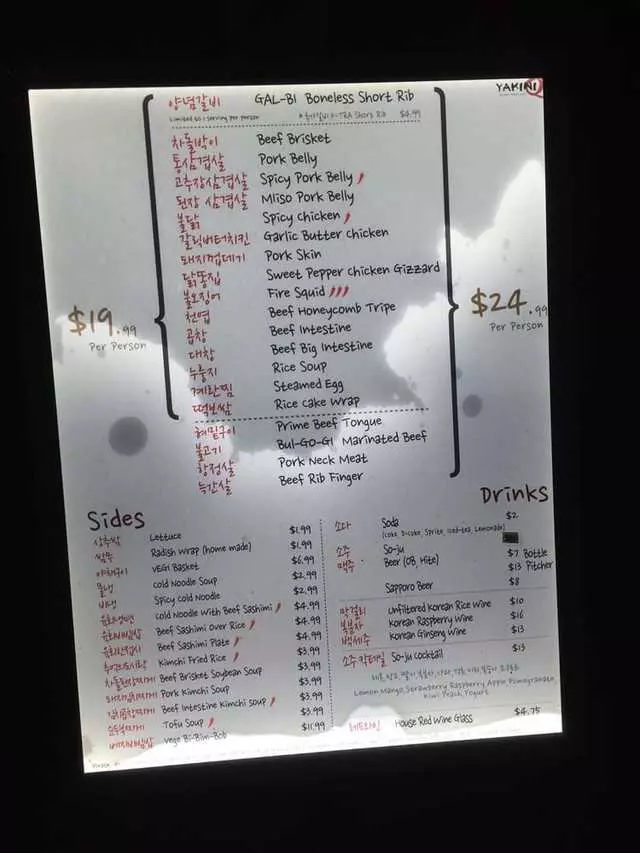 YAKINIQ
양념갈비 GAL-BI Boneless Short Rib
Limited to 1 serving per person EXTRA Short Rib $4.99
차돌박이 Beef Brisket
통삼겹살 Pork Belly
고추장삼겹살 Spicy Pork Belly
된장 삼겹살 Miiso Pork Belly
불닭 Spicy Chicken
갈릭버터치킨 Garlic Butter chicken
돼지껍데기 Pork Skin
닭똥집 Sweet Pepper chicken Gizzard
불오징어 Fire Squid
천엽 Beef Honeycomb Tripe
곱창 Beef Intestine
대창 Beef Big Intestine
누룽지 Rice Soup
계란찜 Steamed Egg
떡보쌈 Rice Cake Wrap
$19.99
Per Person
혀밑구이 Prime Beef Tongue
불고기 Bul-GO-GI Marinated Beef
항정살 Pork Neck Meat
늑간살 Beef Rib Finger
$24.99
Per Person
Sides
상추쌈 Lettuce $1.99
쌈무 Radish Wrap (home made) $1.99
야채구이 VEGI Basket $6.99
물냉 cold Noodle Soup $2.99
비냉 Spicy cold Noodle $2.99
cold Noodle With Beef Sashimi $4.99
육회비빔밥 Beef Sashimi Over Rice $4.99
육회한접시 Beef Sashimi Plate $4.99
Kimchi Fried Rice $3.99
차돌된장찌개 Beef Brisket Soybean Soup $3.99
돼지김치찌개 Pork Kimchi Soup $3.99
김치곱창찌개 Beef Intestine Kimchi soup $3.99
순두부찌개 Tofu Soup $3.99
베지비빔밥 Vege Bi-Bim-Bob $11.99
Drinks
소다 Soda $2
(coke, D-coke, Sprite, Iced-tea, Lemonade)
소주 So-ju
맥주 Beer (OB, Hite) $7 Bottle
$13 Pitcher
Sapporo Beer $8
막걸리 Unfiltered Korean Rice Wine $10
복분자 Korean Raspberry Wine $16
백세주 Korean Ginseng Wine $13
소주 칵테일 So-ju cocktail $13
Lemon, Mango, Strawberry, Raspberry, Apple, Pomegranate,
Kiwi, Peach, Yogurt
하우스와인 House Red Wine Glass $4.75